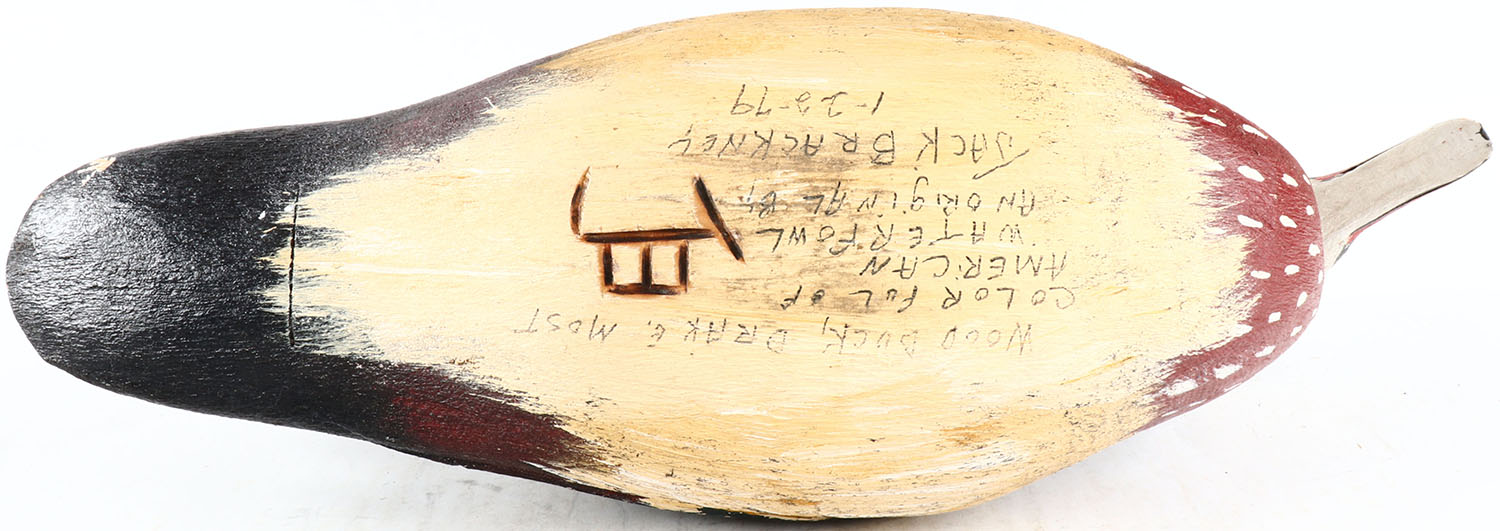 WOOD DUCK, DRAKE, MOST
COLORFUL OF
AMERICAN
WATERFOWL
AN ORIGINAL BY
JACK BRACKNEY
1-22-79